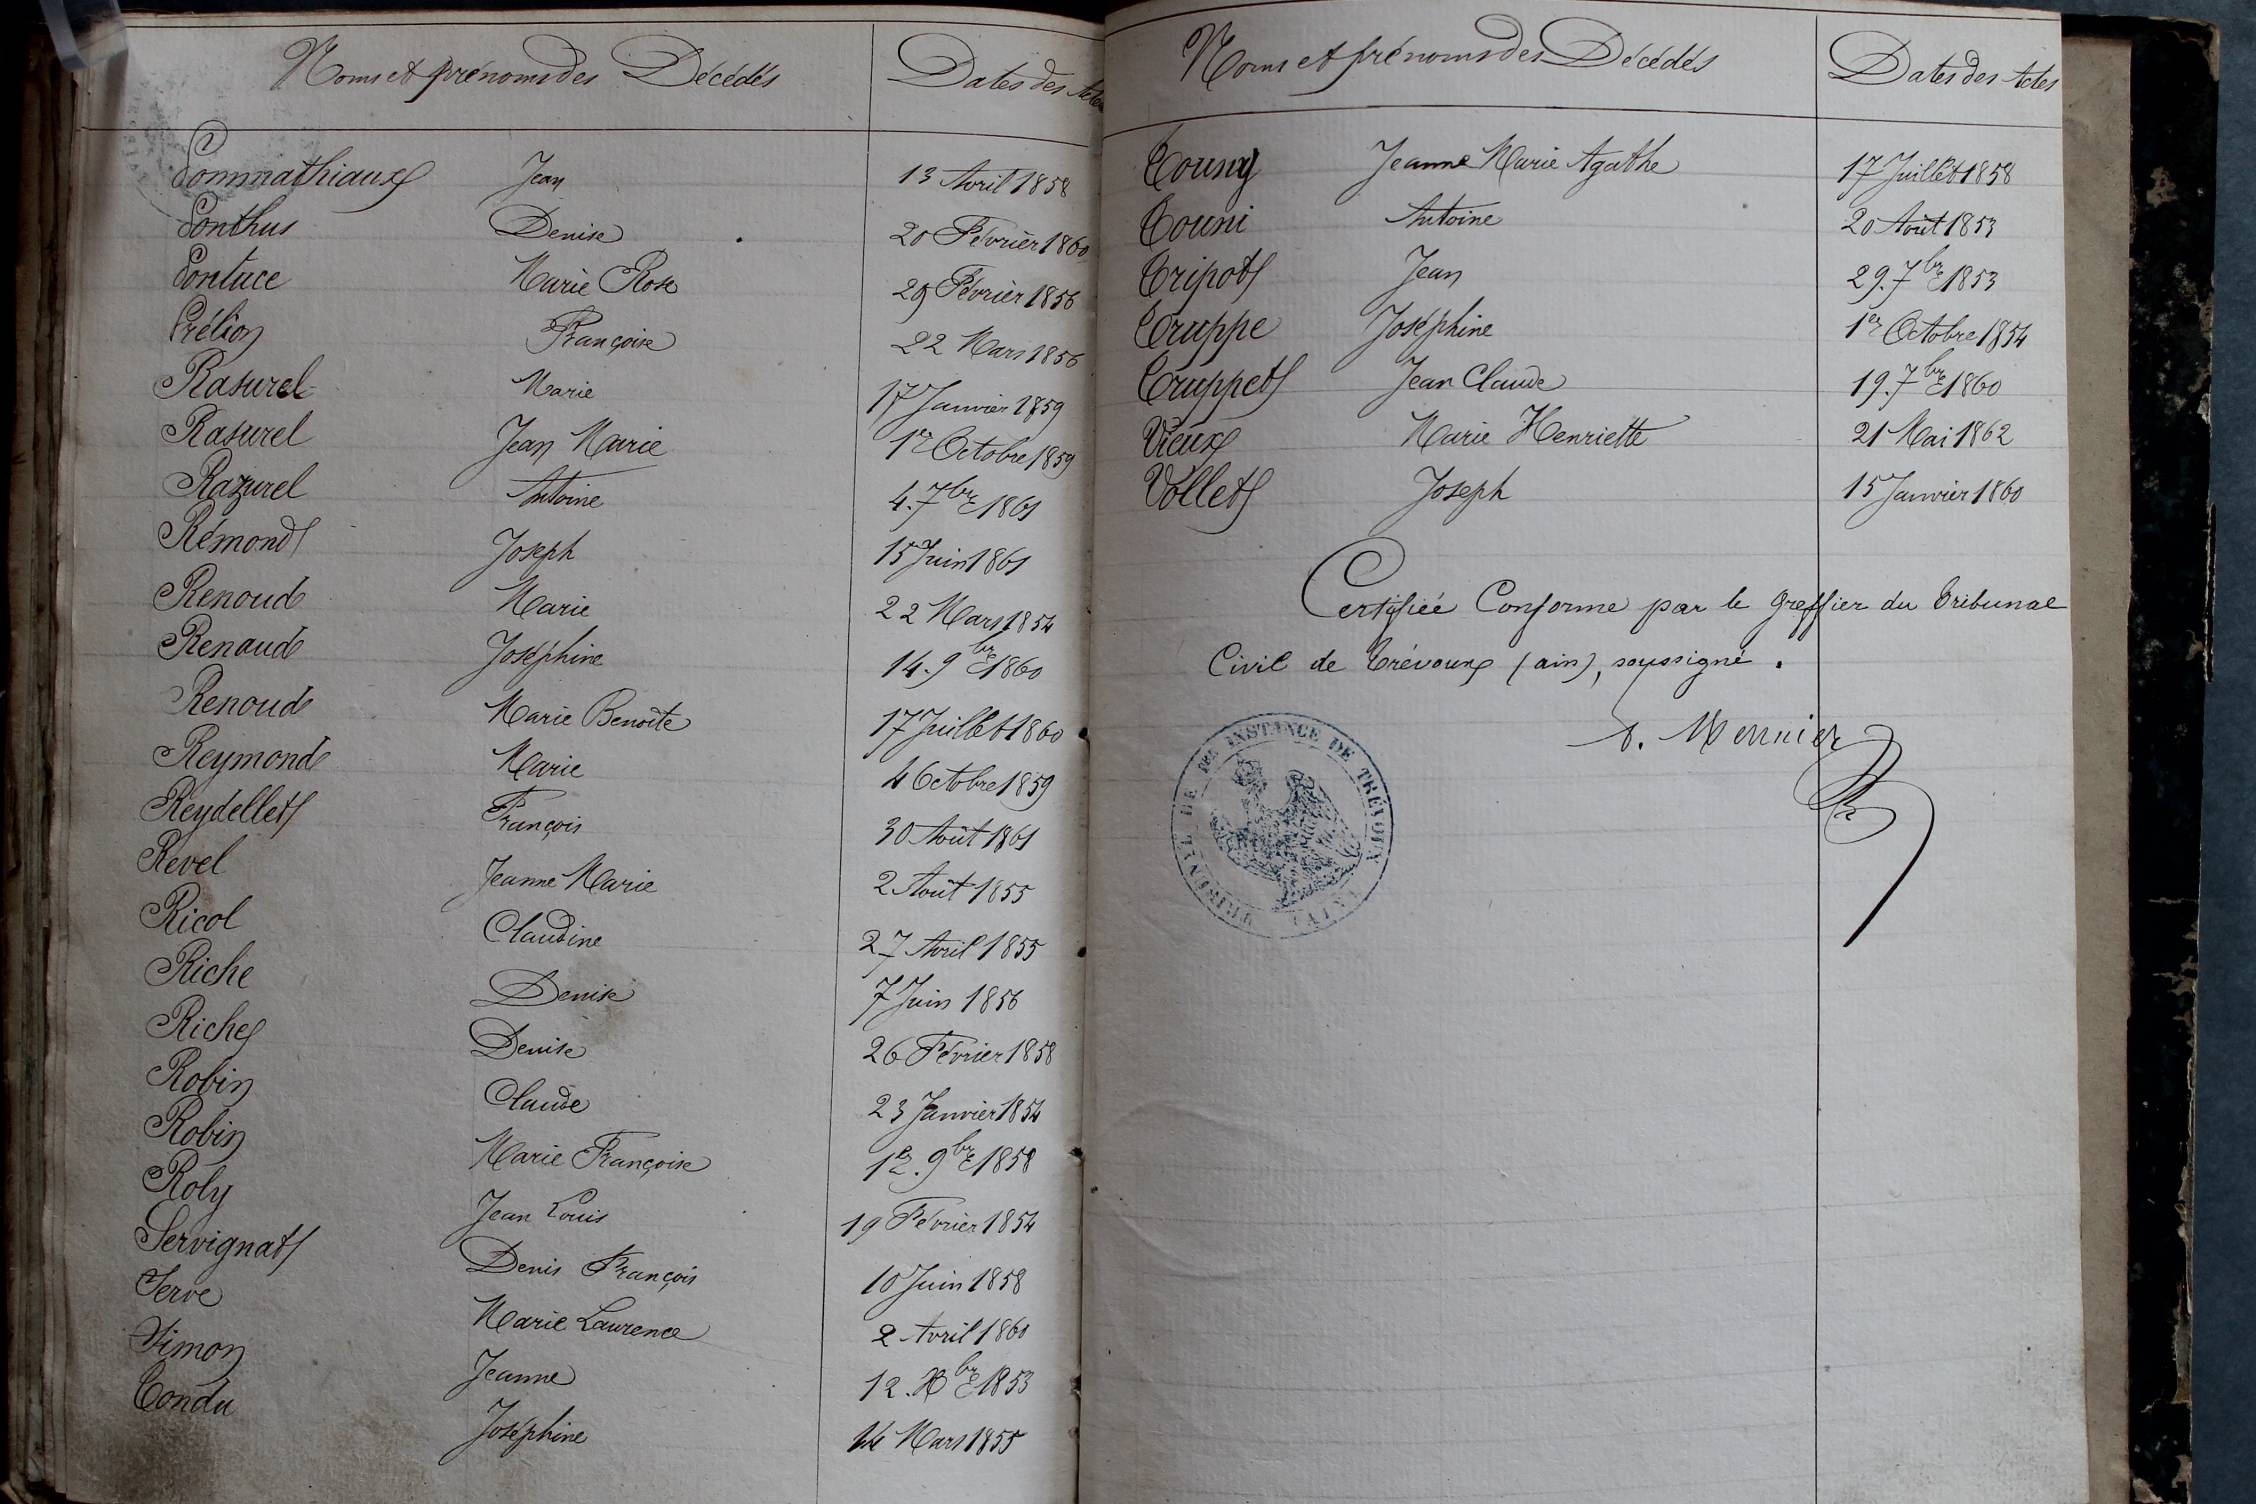 Noms et prénoms des Décédés Dates des Actes
Pommathiaux Jean 13 Avril 1858
Ponthus Denise 20 Février 1860
Pontuce Marie Rose 29 Février 1856
Prélion Françoise 22 Mars 1856
Rasurel Marie 17 Janvier 1859
Rasurel Jean Marie 1er Octobre 1859
Razurel Antoine 4. 7bre 1861
Rémond Joseph 15 Juin 1861
Renoud Marie 22 Mars 1854
Renaud Joséphine 14. 9bre 1860
Renoud Marie Benoîte 17 Juillet 1860
Reymond Marie 4 Octobre 1859
Reydellet François 30 Août 1861
Revel Jeanne Marie 2 Août 1855
Ricol Claudine 27 Avril 1855
Riche Denise 7 Juin 1856
Riche Denise 26 Février 1858
Robin Claude 23 Janvier 1854
Robin Marie Françoise 9bre 1858
Roly Jean Louis 19 Février 1854
Servignat Denis François 10 Juin 1858
Serve Marie Laurence 2 Avril 1860
Simon Jeanne 12. Xbre 1853
Tondu Joséphine 14 Mars 1855
Noms et prénoms des Décédés Dates des Actes
Touny Jeanne Marie Agathe 17 Juillet 1858
Touni Antoine 20 Août 1853
Tripot Jean 29. 7bre 1853
Truppe Joséphine 1er Octobre 1854
Truppet Jean Claude 19. 7bre 1860
Vieux Marie Henriette 21 Mai 1862
Vollet Joseph 15 Janvier 1860
Certifiée Conforme par le greffier du Tribunal
Civil de Trévoux (ain), soussigné.
Meunier
TRIBUNAL DE 1ère INSTANCE DE TRÉVOUX (AIN)